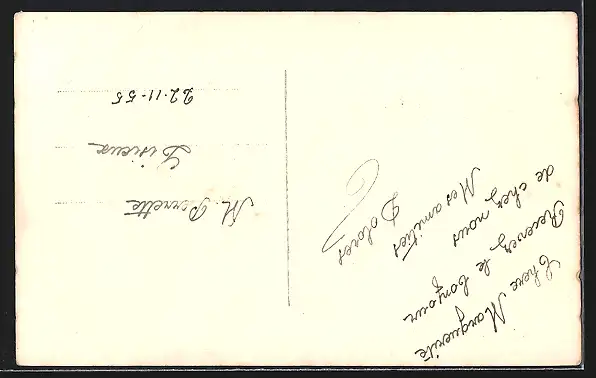 Chere Marguerite
Recevez le bonjour
de chez nous
Mes amitiés
Dolores
M. Perrette
Lisieux
22-11-55